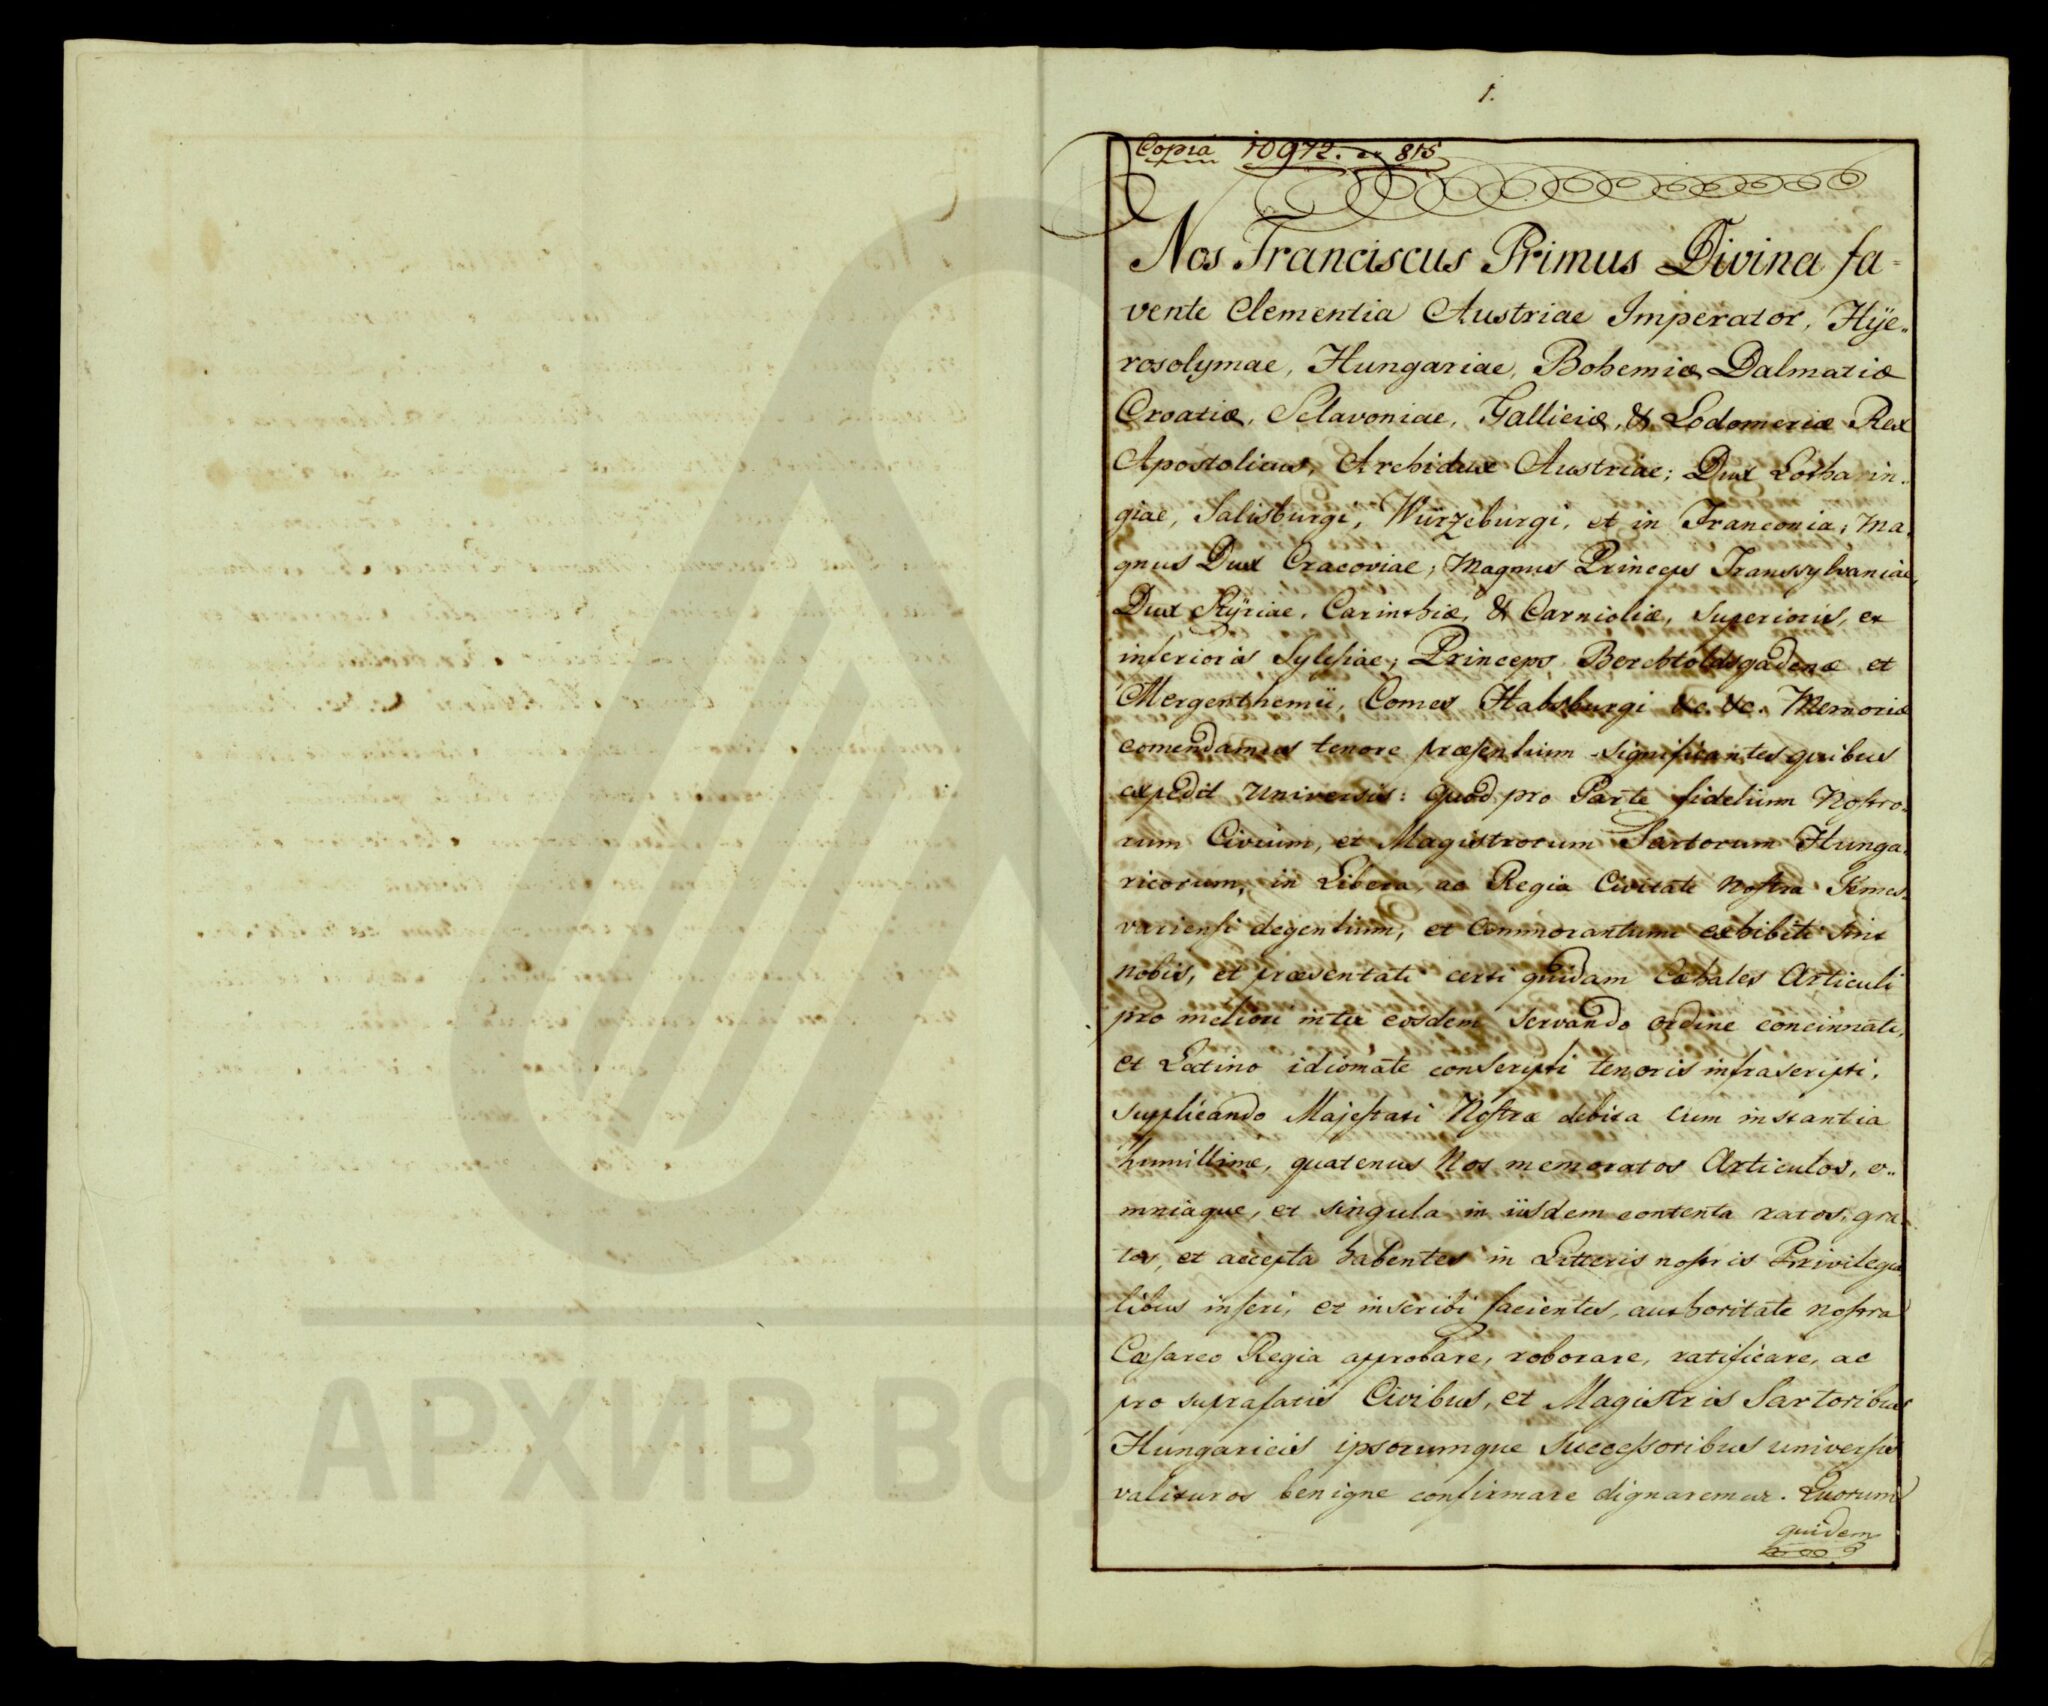 1.
Copia 10972. 815
Nos Franciscus Primus Divina fa-
vente Clementia Austriae Imperator, Hÿe-
rosolymae, Hungariae, Bohemiæ Dalmatiæ
Croatiæ, Sclavoniae, Galliciæ, & Lodomeriæ Rex
Apostolicus, Archidux Austriae; Dux Lotharin-
giae, Salisburgi, Würzeburgi, et in Franconia; Ma-
gnus Dux Cracoviae; Magnus Princeps Transsylvaniae,
Dux Stÿriae, Carinthiæ, & Carnioliæ, superioris, et
inferioris Sylesiae; Princeps Berchtoldsgadenæ et
Mergenthemii, Comes Habsburgi &c. &c. Memoriæ
comendamus tenore præsentium significantes quibus
expedit Universis: quod pro Parte fidelium Nostro-
rum Civium, et Magistrorum Sartorum Hunga-
ricorum, in Libera, ac Regia Civitate nostra Temes-
variensi degentium, et Commorantium exhibiti sint
nobis, et præsentati certi quidam Cæhales Articuli
pro meliori inter eosdem servando ordine concinnati,
et Latino idiomate conscripti tenoris infrascripti,
supplicando Majestati Nostræ debita cum instantia
humillime, quatenus Nos memoratos Articulos, o-
mniaque, et singula in iisdem contenta ratos, gra-
tos, et accepta habentes in Litteris nostris Privilegia-
libus inseri, et inscribi facientes, authoritate nostra
Cæsareo Regia approbare, roborare, ratificare, ac
pro suprafatis Civibus, et Magistris Sartoribus
Hungaricis ipsorumque successoribus universis
valituros benigne confirmare dignaremur. Quorum
quidem
АРХИВ